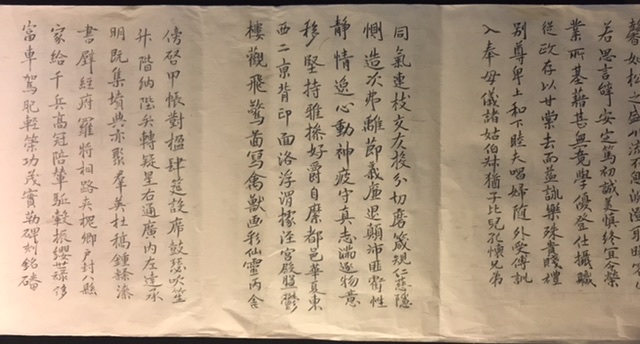 馨如松之盛川流不息淵澄取映
若思言辭安定篤初誠美慎終宜令榮
業所基藉甚無竟學優登仕攝職
從政存以甘棠去而益詠樂殊貴賤禮
別尊卑上和下睦夫唱婦隨外受傅訓
入奉母儀諸姑伯叔猶子比兒孔懷兄弟
同氣連枝交友投分切磨箴規仁慈隱
惻造次弗離節義廉退顛沛匪虧性
靜情逸心動神疲守真志滿逐物意
移堅持雅操好爵自縻都邑華夏東
西二京背邙面洛浮渭據涇宮殿盤鬱
樓觀飛驚啚寫禽獸画彩仙靈丙舍
傍啓甲帳對楹肆筵設席鼓瑟吹笙
升階納陛弁轉疑星右通廣內左達承
明既集墳典亦聚羣英杜稿鍾隸漆
書壁經府羅將相路夾槐卿戶封八縣
家給千兵高冠陪輦驅轂振纓世祿侈
富車駕肥輕策功茂實勒碑刻銘磻